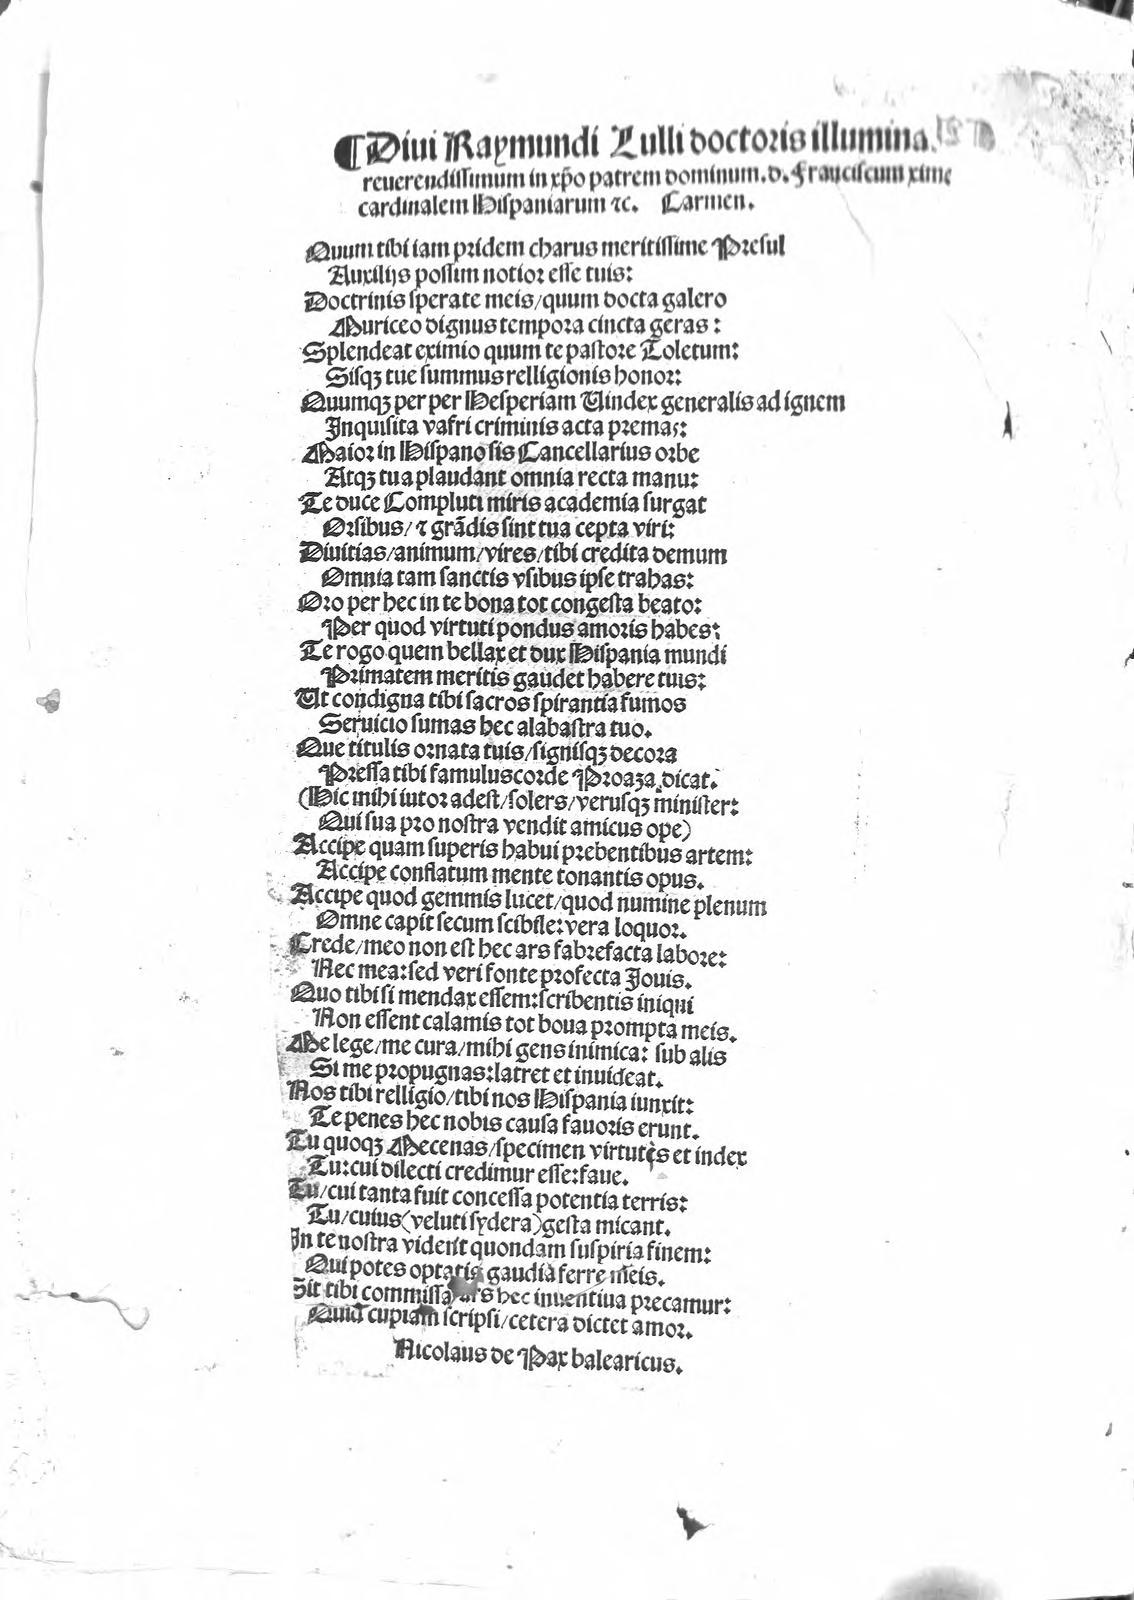 ¶Diui Raymundi Lulli doctoris illumina.
reuerendissimum in xp̄o patrem dominum.d. Franciscum xime
cardinalem Hispaniarum ⁊c. Carmen.
Quum tibi iam pridem charus meritissime Presul
Auxilijs possim notior esse tuis:
Doctrinis sperate meis/quum docta galero
Muriceo dignus tempora cincta geras:
Splendeat eximio quum te pastore Toletum:
Sisqꝫ tue summus relligionis honor:
Quumqꝫ per per Hesperiam Uindex generalis ad ignem
Inquisita vafri criminis acta premas:
Maior in Hispano sis Cancellarius orbe
Atqꝫ tua plaudant omnia recta manu:
Te duce Compluti miris academia surgat
Orsibus/⁊ grādis sint tua cepta viri:
Diuitias/animum/vires/tibi credita demum
Omnia tam sanctis vsibus ipse trahas:
Oro per hec in te bona tot congesta beato:
Per quod virtuti pondus amoris habes:
Te rogo quem bellax et dux Hispania mundi
Primatem meritis gaudet habere tuis:
Ut condigna tibi sacros spirantia fumos
Seruicio sumas hec alabastra tuo.
Que titulis ornata tuis/signisqꝫ decora
Pressa tibi famulus corde Proaza dicat.
(Hic mihi tutor adest/solers/verusqꝫ minister:
Qui sua pro nostra vendit amicus ope)
Accipe quam superis habui prebentibus artem:
Accipe conflatum mente tonantis opus.
Accipe quod gemmis lucet/quod numine plenum
Omne capit secum scibile:vera loquor.
Crede/meo non est hec ars fabrefacta labore:
Nec mea:sed veri fonte profecta Jouis.
Quo tibi si mendax essem:scribentis iniqui
Non essent calamis tot boua prompta meis.
Me lege/me cura/mihi gens inimica: sub alis
Si me propugnas:latret et inuideat.
Nos tibi relligio/tibi nos Hispania iunxit:
Te penes hec nobis causa fauoris erunt.
Tu quoqꝫ Mecenas/specimen virtutis et index
Tu:cui dilecti credimur esse:faue.
Tu/cui tanta fuit concessa potentia terris:
Tu/cuius(veluti sydera)gesta micant.
In te nostra viderit quondam suspiria finem:
Qui potes optatis gaudia ferre meis.
Sit tibi commissa ars hec inuentiua precamur:
Quid cupiam scripsi/cetera dictet amor.
Nicolaus de Pax balearicus.